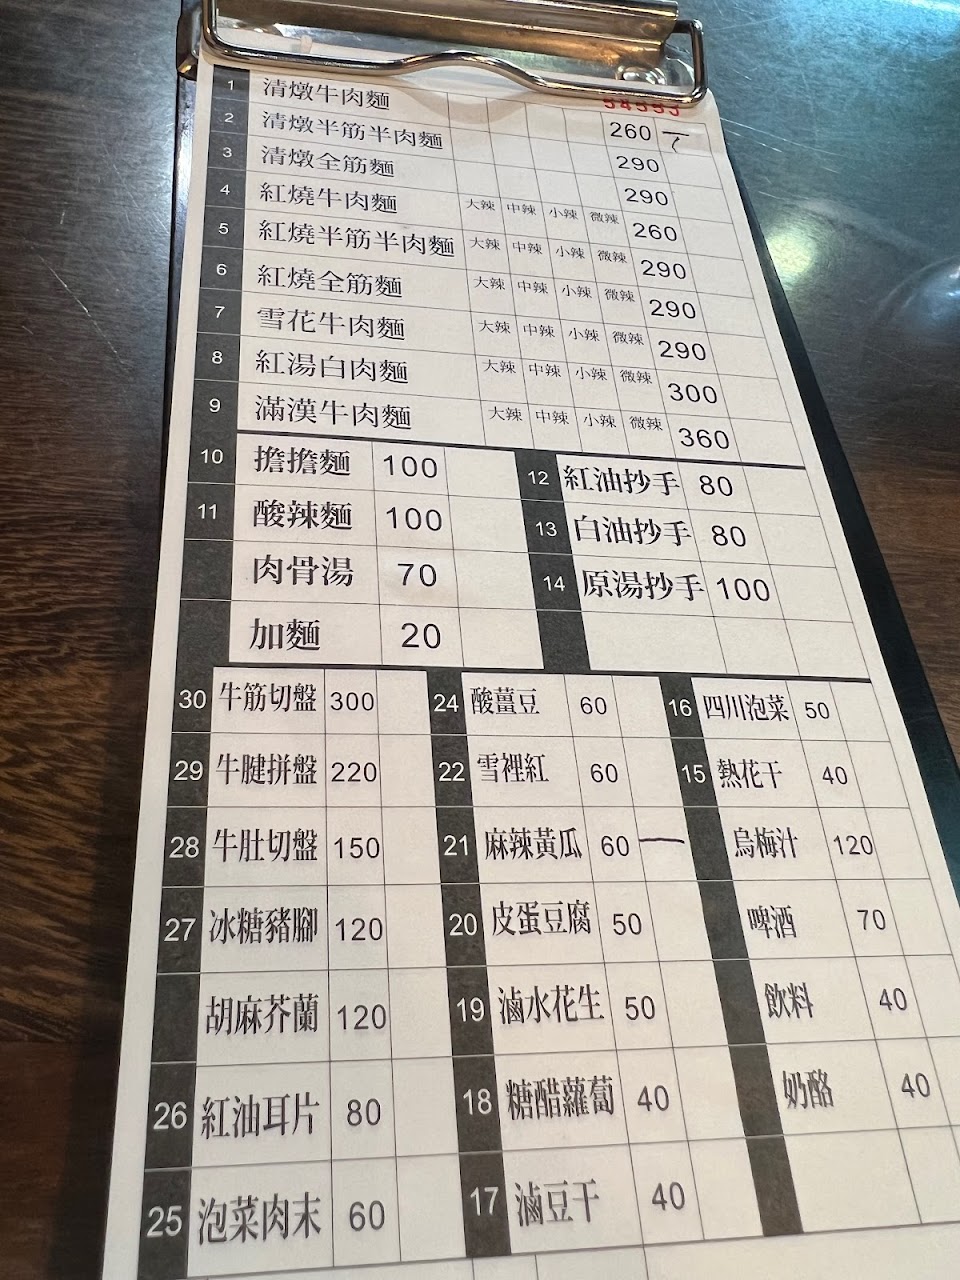 1 清燉牛肉麵 260
2 清燉半筋半肉麵 290
3 清燉全筋麵 290
4 紅燒牛肉麵 大辣 中辣 小辣 微辣 260
5 紅燒半筋半肉麵 大辣 中辣 小辣 微辣 290
6 紅燒全筋麵 大辣 中辣 小辣 微辣 290
7 雪花牛肉麵 大辣 中辣 小辣 微辣 290
8 紅湯白肉麵 大辣 中辣 小辣 微辣 300
9 滿漢牛肉麵 大辣 中辣 小辣 微辣 360
10 擔擔麵 100 12 紅油抄手 80
11 酸辣麵 100 13 白油抄手 80
肉骨湯 70 14 原湯抄手 100
加麵 20
30 牛筋切盤 300 24 酸薑豆 60 16 四川泡菜 50
29 牛腱拼盤 220 22 雪裡紅 60 15 熱花干 40
28 牛肚切盤 150 21 麻辣黃瓜 60 一 烏梅汁 120
27 冰糖豬腳 120 20 皮蛋豆腐 50 啤酒 70
胡麻芥蘭 120 19 滷水花生 50 飲料 40
26 紅油耳片 80 18 糖醋蘿蔔 40 奶酪 40
25 泡菜肉末 60 17 滷豆干 40